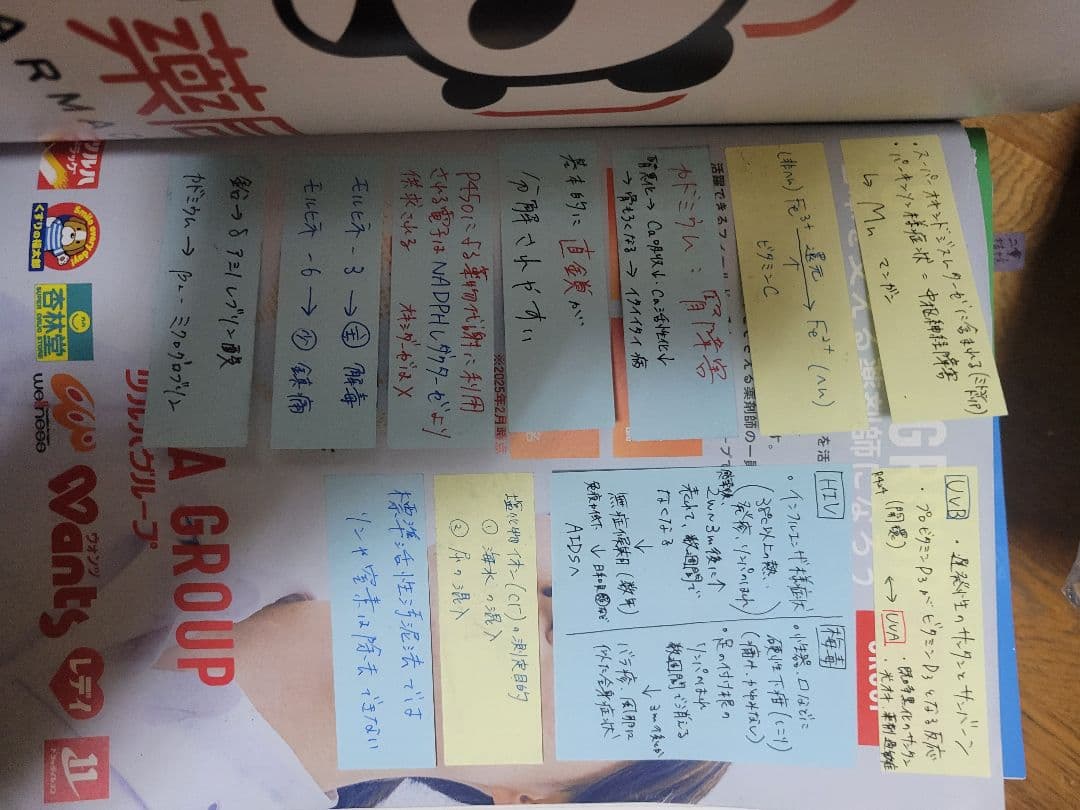 薬局
ARMAC
・スーパーオキシドジスムターゼに含まれる(ミトコンドリア)
・パーキンソン様症状=中枢神経障害
↳ Mn マンガン
(非ヘム) Fe³⁺ 還元→ Fe²⁺ (ヘム)
↑
ビタミンC
カドミウム:胃障害
腎悪化→Ca吸収↓、Ca活性化↓
→骨もろくなる→イタイイタイ病
基本的に直鎖が
分解されやすい
P450による薬物代謝に利用
される電子はNADPHレダクターゼより
供求される
モルヒネ-3→㊎解毒
モルヒネ-6→㊛鎮痛
鉛→δアミノレブリン酸
カドミウム→β₂-ミクログロブリン
UVB
・遅発性のサンタンとサンバーン
・プロビタミンD₃がビタミンD₃となる反応
(開環)
↔ UVA
・即時黒化のサンタン
・光老化、薬剤過敏症
HIV
・インフルエンザ様症状
(38℃以上熱、
発疹、リンパのはれ)
2w~3m後に↑
表れて、数週間で
なくなる
↓
無症候期(数年)
免疫力低下 ↓ 日和見感染など
AIDSへ
梅毒
・性器、口などに
硬性下疳(しこり)
(痛み・かゆみなし)
・足の付け根の
リンパのはれ
数週間で消える
↓3mの後とか
バラ疹、風邪に
似た全身症状
塩化物イオン(Cl⁻)の測定目的
① 海水の混入
② 尿の混入
標準活性汚泥法では
リンや窒素は除去できない
※2025年2月時点
二重
活躍できるフィールド
える薬剤師の一員
A GROUP
ツルハグループ
ツルハドラッグ
Smile every day!
くすりの福太郎
杏林堂
SUPER DRUG STORE
welneee
Wants
ウォンツ
レディ
11